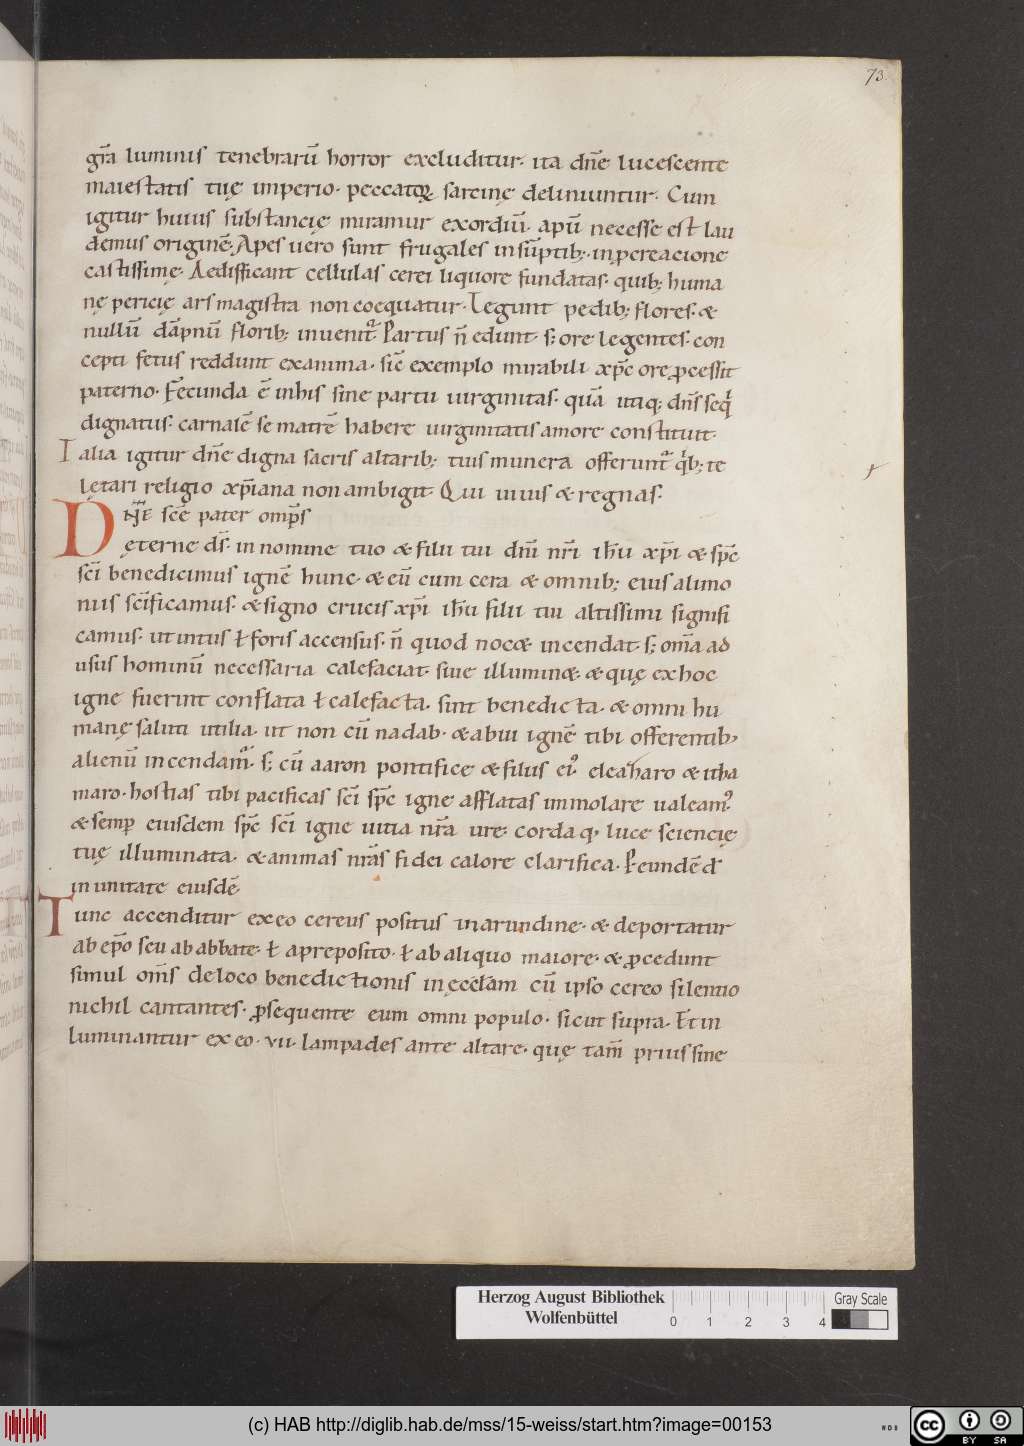 73
gr̄a luminis tenebrarū horror excluditur· ita dn̄e lucescente
maiestatis tuę imperio· peccatoꝝ sarcinę deliniuntur· Cum
igitur huius substancię miramur exordiū· apū necesse est lau
demus originē· Apes uero sunt frugales in sūptib; in pcreacione
castissimę· Aedifficant cellulas cerei liquore fundatas· quib; huma
nę pericię ars magistra non coequatur· Legunt pedib; flores· &
nullū dāpnū florib; inuenit᷑ Partus n̄ edunt· s; ore legentes· con
cepti fetus reddunt examina· sic̄ exemplo mirabili xp̄c ore ꝓcessit
paterno· Fęcunda ē in his sine partu uirginitas· quā utiq; dn̄s seq̇
dignatus· carnalē se matrē habere uirginitatis amore constituit·
Talia igitur dn̄e digna sacris altarib; tuis munera offerunt᷑ q̇b; te
lętari religio xp̄iana non ambigit· Qui uiuis & regnas·
DN̄E sc̄e pater omp̄s
ęterne ds̄· in nomine tuo & filii tui dn̄i nr̄i ih̄u xp̄i & sp̄c
sc̄i benedicimus ignē hunc· & eū cum cera & omnib; eius alimo
niis sc̄ificamus· & signo crucis xp̄i ih̄u filii tui altissimi signifi
camus· ut intus ł foris accensus· n̄ quod noc& incendat· s; om̄a ad
usus hominū necessaria calefaciat· siue illumin&· & quę ex hoc
igne fuerint conflata ł calefacta· sint benedicta· & omni hu
manę saluti utilia· ut non cū nadab· & abiu ignē tibi offerentib;
alienū incendam᷑· s; cū aaron pontifice & filiis ei᷒ eleaharo & itha
maro· hostias tibi pacificas sc̄i sp̄c igne afflatas immolare ualeam᷒·
& semꝑ eiusdem sp̄c sc̄i igne uitia nr̄a ure· corda q; luce sciencię
tuę illuminata· & animas nr̄as fidei calore clarifica· P eundē d̄
in unitate eiusdē
Tunc accenditur ex eo cereus positus in arundine· & deportatur
ab ep̄o seu ab abbate· ł a preposito· ł ab aliquo maiore· & ꝓcedunt
simul om̄s de loco benedictionis in ęcclām cū ipso cereo silentio
nichil cantantes· ꝓsequente eum omni populo· sicut supra· Et in
luminantur ex eo· vii· lampades ante altare· quę tam̄ prius sine
Herzog August Bibliothek
Wolfenbüttel
0 1 2 3 4
Gray Scale
(c) HAB http://diglib.hab.de/mss/15-weiss/start.htm?image=00153
cc BY SA